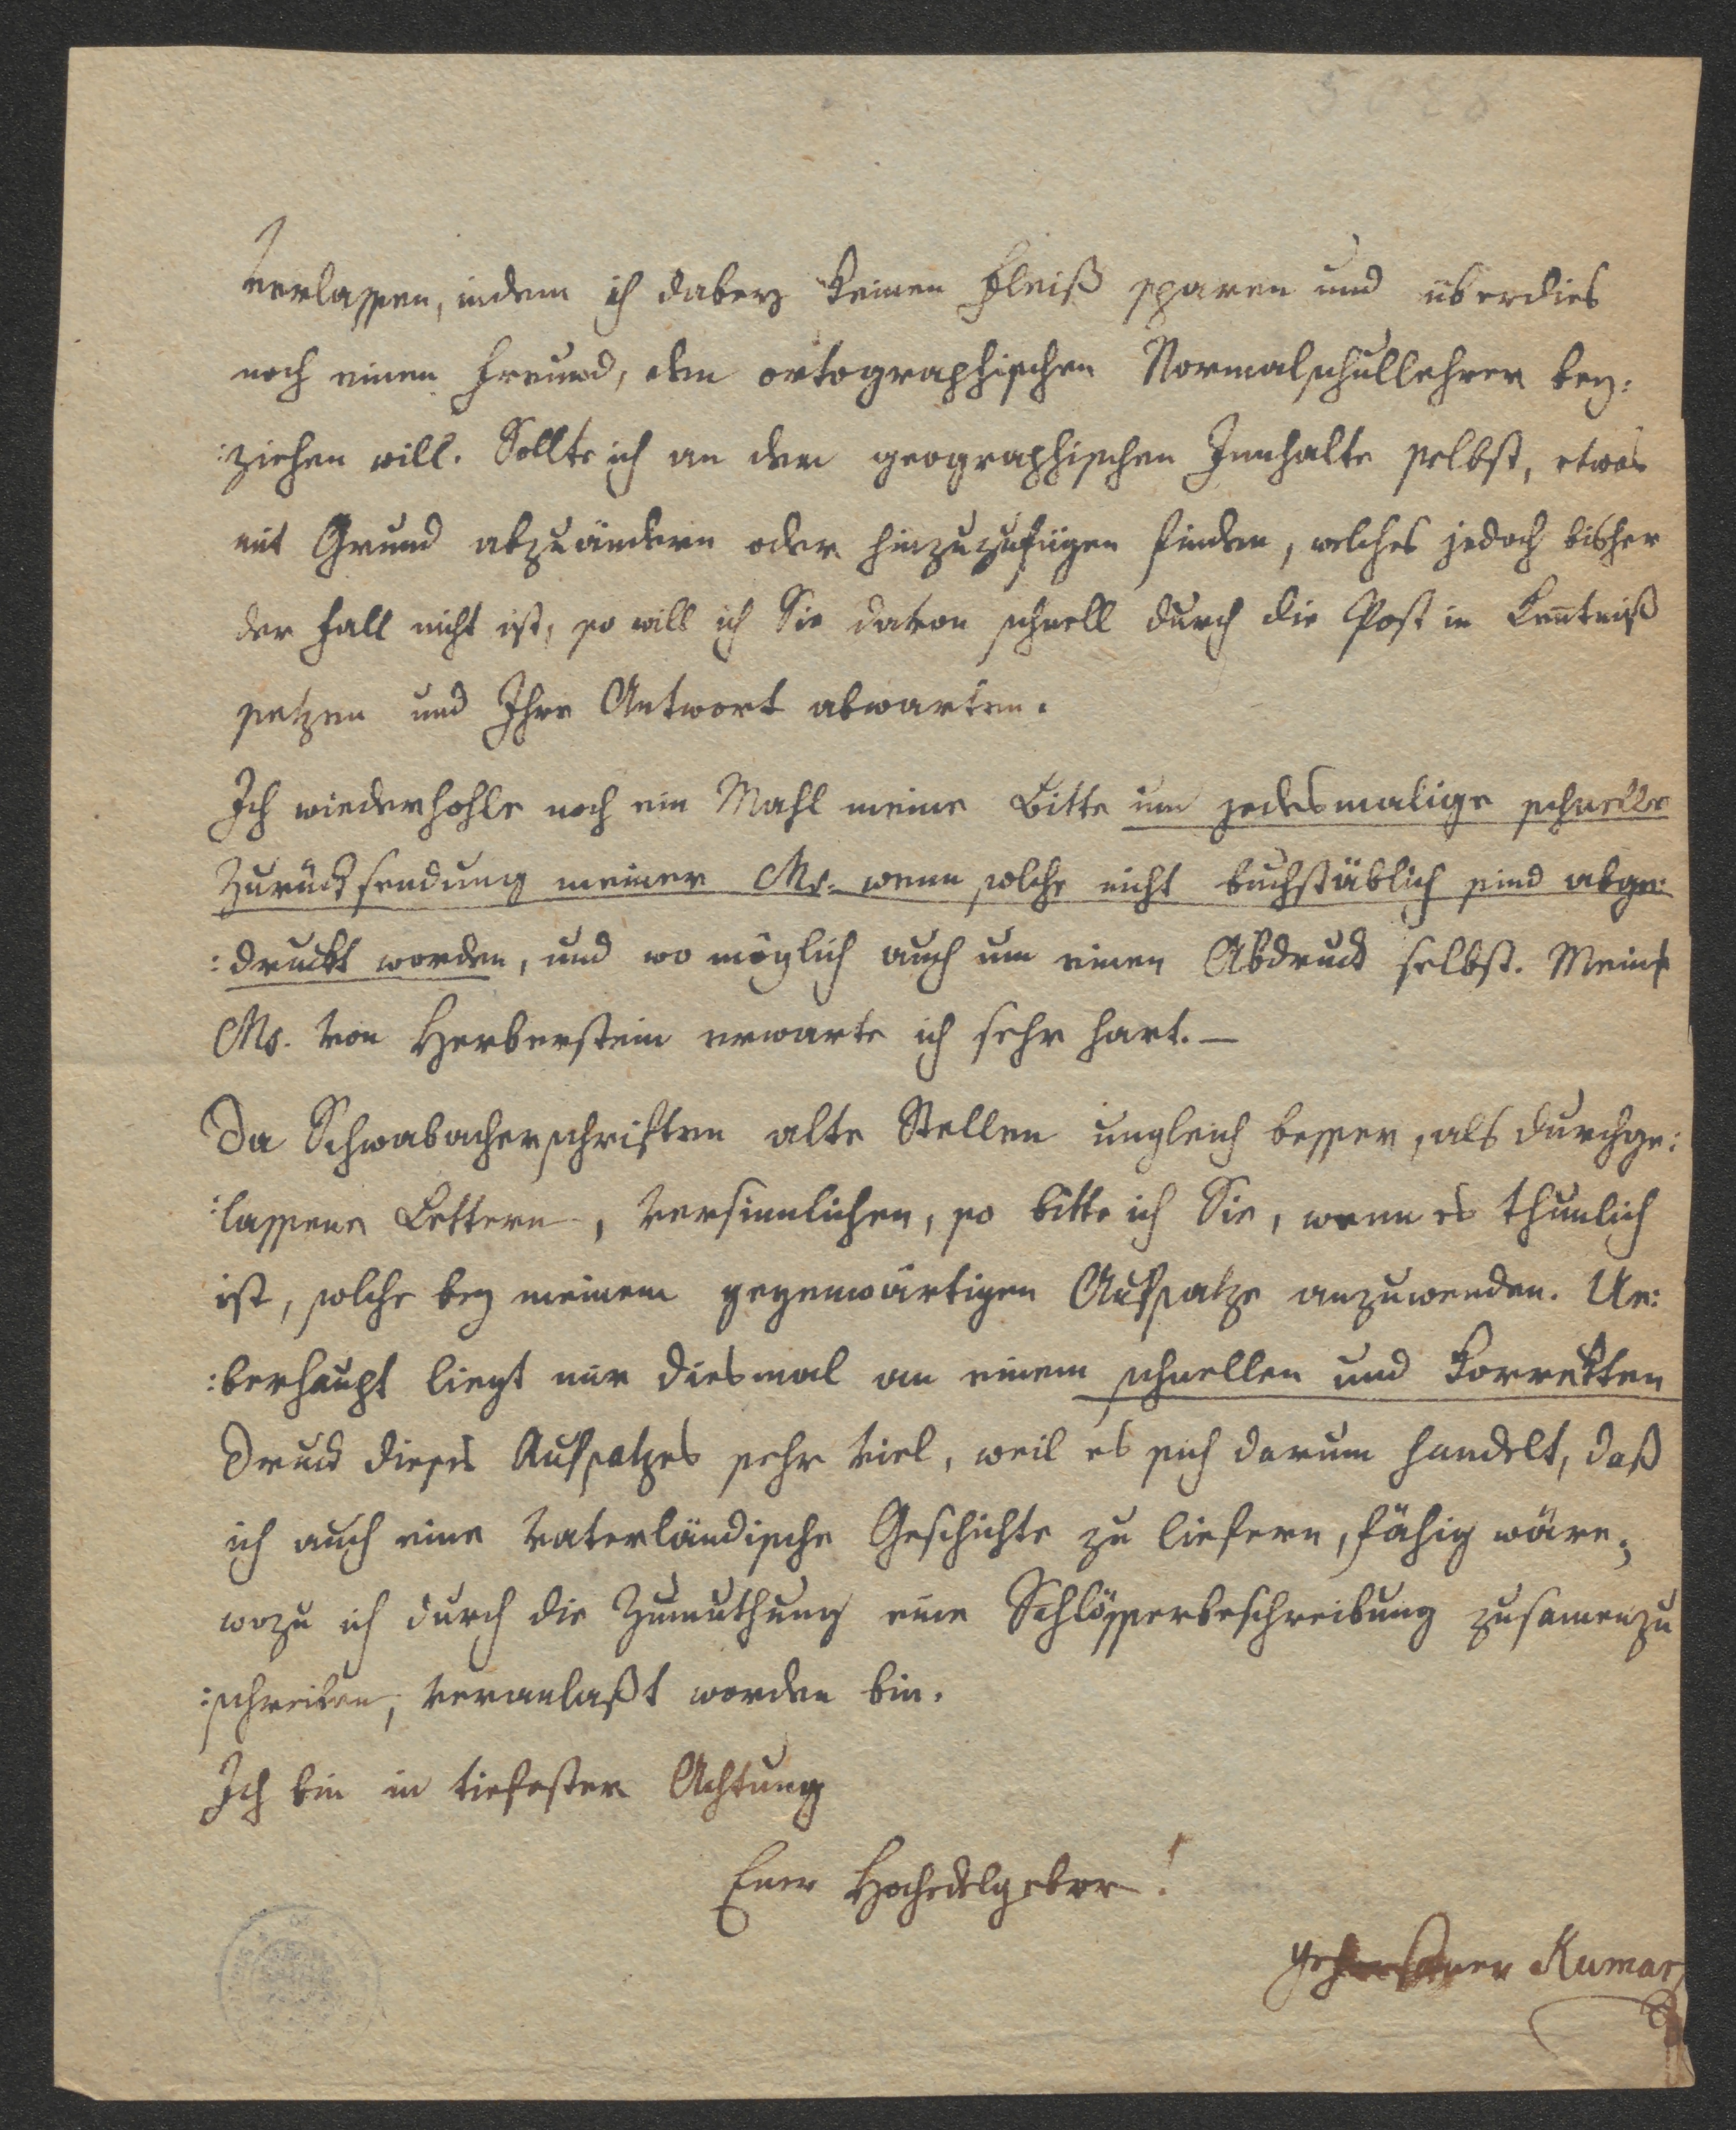 verlassen, indem ich dabey keinen Fleiß sparen und überdies
noch einen Freund, den ortographischen Normalschullehrer bey:
:ziehen will. Sollte ich an dem geographischen Innhalte selbst, etwas
mit Grund abzuändern oder hinzuzufügen finden, welches jedoch bisher
der Fall nicht ist, so will ich Sie davon schnell durch die Post in Kentniß
setzen und Ihre Antwort abwarten.
Ich wiederhohle noch ein Mahl meine Bitte um jedesmalige schnelle
Zurücksendung meiner Ms. wenn solche nicht buchstäblich sind abge:
:druckt worden, und wo möglich auch um einen Abdruck selbst. Meins
Ms. von Herberstein erwarte ich sehr hart. –
Da Schwabacherschriften alte Stellen ungleich besser, als durchge:
:lassene Lettern, versinnlichen, so bitte ich Sie, wenn es thunlich
ist, solche bey meinem gegenwärtigen Aufsatze anzuwenden. Ue:
:berhaupt liegt mir diesmal an einem schnellen und korrekten
Druck dieses Aufsatzes sehr viel, weil es sich darum handelt, daß
ich auch eine vaterländische Geschichte zu liefern, fähig wäre;
wozu ich durch die Zumuthung eine Schlösserbeschreibung zusamenzu
:schreiben, veranlaßt worden bin.
Ich bin in tiefester Achtung
Euer Hochedelgebor!
gehorsamer Kumar